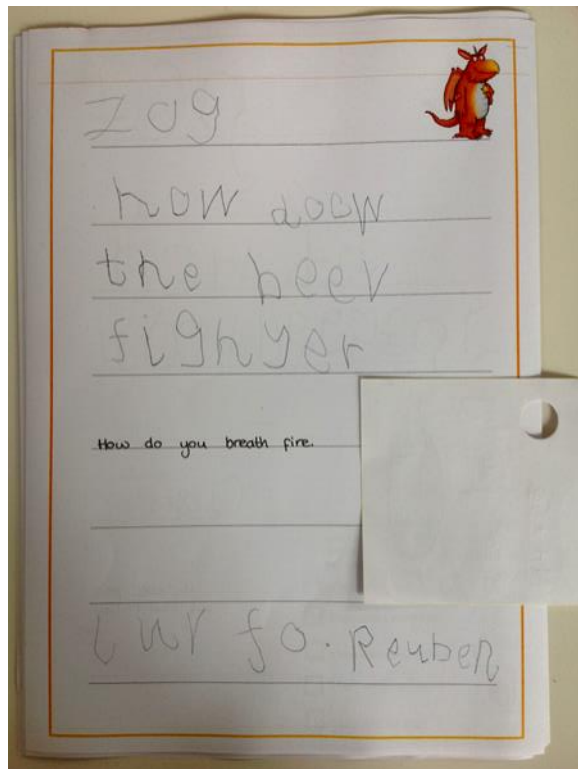 zog
how doow
the heev
fighyer
How do you breath fire.
Lur fo. Reuben